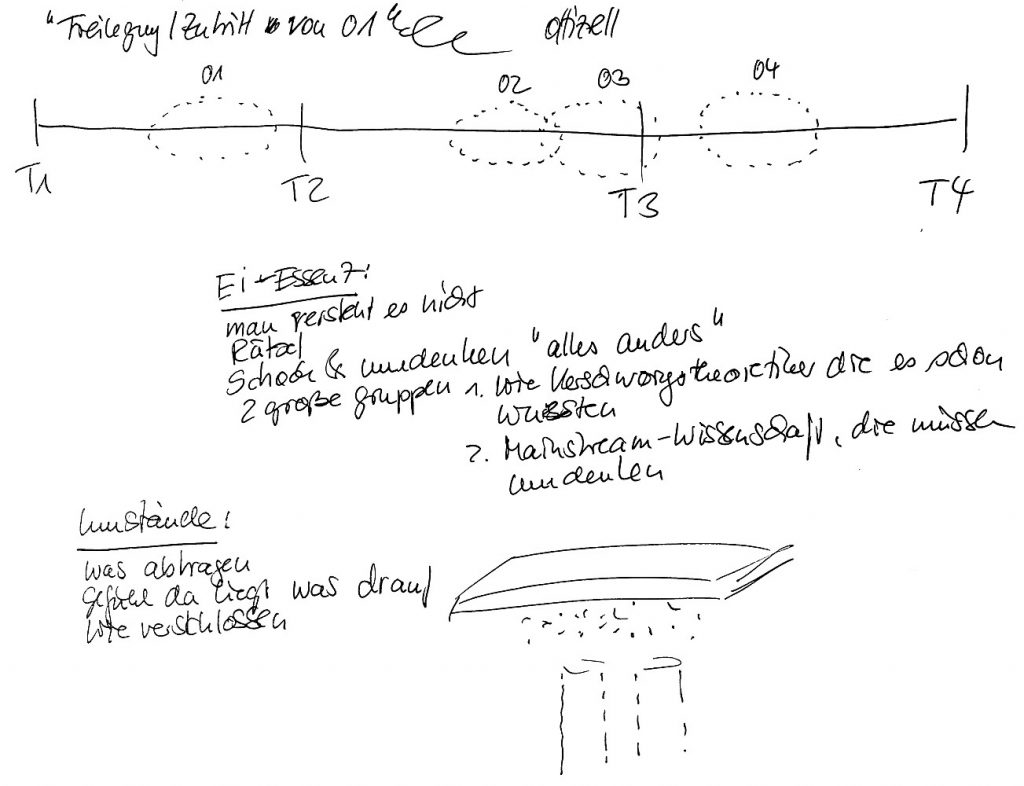 "Freilegung/Zutritt von 01" offiziell
01 02 03 04
T1 T2 T3 T4
Ei-Essenz:
man versteht es nicht
Rätsel
Schock & umdenken "alles anders"
2 große gruppen 1. wie Verschwörungstheoretiker die es schon
wussten
2. Mainstream-Wissenschaft, die müssen
umdenken
Umstände:
was abtragen
gefühl da liegt was drauf
wie verschlossen